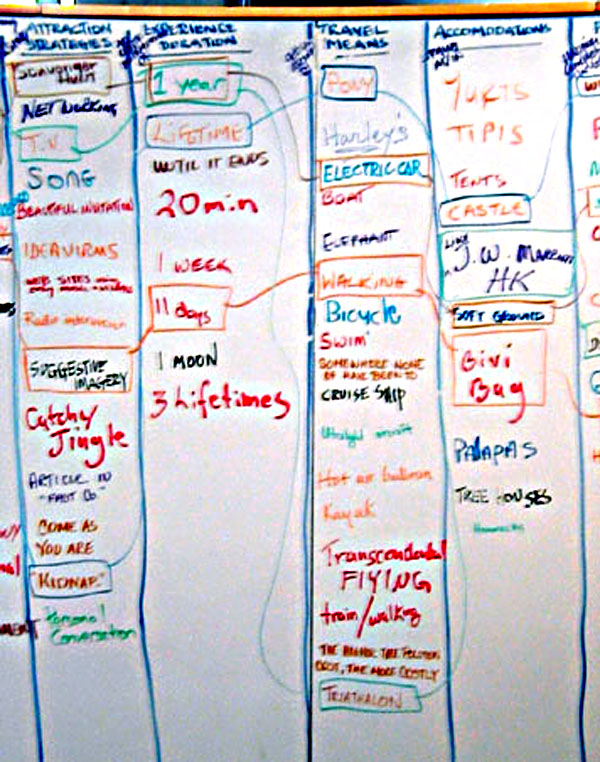 ATTRACTION
STRATEGIES
Scavenger
Hunt
NETWORKING
T.V.
SONG
BEAUTIFUL INVITATION
IDEAVIRUS
WEB SITES
Radio
SUGGESTIVE
IMAGERY
Catchy
Jingle
ARTICLE IN
"FAST CO"
COME AS
YOU ARE
"KIDNAP"
Personal
Conversation
EXPERIENCE
DURATION
1 year
LIFETIME
UNTIL IT ENDS
20 min
1 WEEK
11 days
1 MOON
3 Lifetimes
TRAVEL
MEANS
PONY
Harley's
ELECTRIC CAR
BOAT
ELEPHANT
WALKING
Bicycle
SWIM
SOMEWHERE NONE
OF HAVE BEEN TO
CRUISE SHIP
Ultralight aircraft
Hot air balloon
Kayak
Transcendental
FLYING
train/walking
THE HIGHER THE POLLUTION
COST, THE MORE COSTLY
TRIATHALON
ACCOMODATIONS
YURTS
TIPIS
TENTS
CASTLE
LIKE
J.W. MARRIOTT
HK
SOFT GROUND
Bivi
Bag
PALAPAS
TREE HOUSES
Hammocks